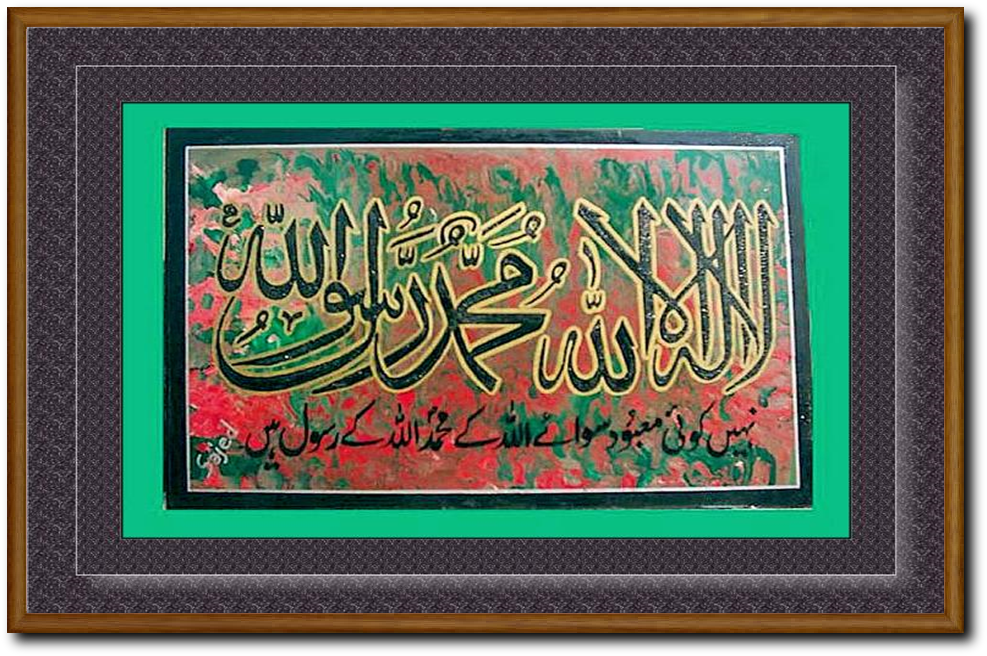 لا اله الا الله محمد رسول الله
نہیں کوئی معبُود سوائے اللہ کے محمدؐ اللہ کے رسول ہیں
Sajed